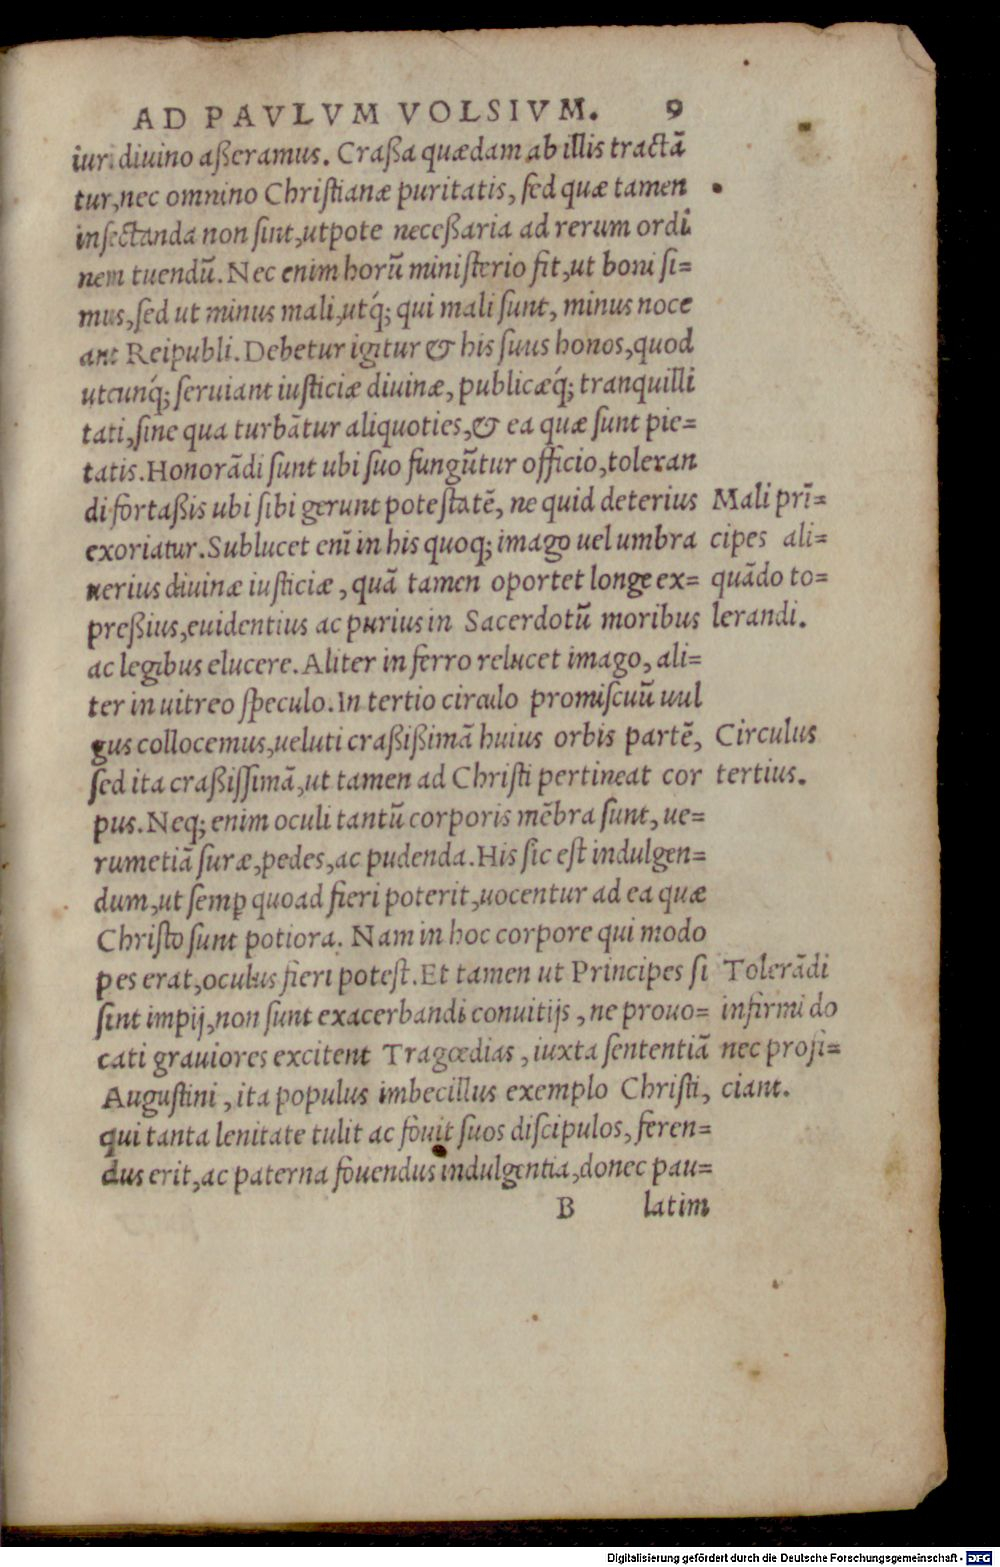 AD PAVLVM VOLSIVM. 9
iuri diuino aßeramus. Craßa quædam ab illis tractã
tur, nec omnino Christianæ puritatis, sed quæ tamen
insectanda non sint, utpote neceßaria ad rerum ordi
nem tuendũ. Nec enim horũ ministerio fit, ut boni si=
mus, sed ut minus mali, utq́; qui mali sunt, minus noce
ant Reipubli. Debetur igitur & his suus honos, quod
utcunq́; seruiant iusticiæ diuinæ, publicæq́; tranquilli
tati, sine qua turbãtur aliquoties, & ea quæ sunt pie=
tatis. Honorãdi sunt ubi suo fungũtur officio, toleran
di fortaßis ubi sibi gerunt potestatẽ, ne quid deterius
exoriatur. Sublucet enĩ in his quoq; imago uel umbra
uerius diuinæ iusticiæ, quã tamen oportet longe ex=
preßius, euidentius ac purius in Sacerdotũ moribus
ac legibus elucere. Aliter in ferro relucet imago, ali=
ter in uitreo speculo. In tertio circulo promiscuũ uul
gus collocemus, ueluti craßißimã huius orbis partẽ,
sed ita craßissimã, ut tamen ad Christi pertineat cor
pus. Neq; enim oculi tantũ corporis mẽbra sunt, ue=
rumetiã suræ, pedes, ac pudenda. His sic est indulgen=
dum, ut semꝑ quoad fieri poterit, uocentur ad ea quæ
Christo sunt potiora. Nam in hoc corpore qui modo
pes erat, oculus fieri potest. Et tamen ut Principes si
sint impij, non sunt exacerbandi conuitijs, ne prouo=
cati grauiores excitent Tragœdias, iuxta sententiã
Augustini, ita populus imbecillus exemplo Christi,
qui tanta lenitate tulit ac fouit suos discipulos, feren=
dus erit, ac paterna fouendus indulgentia, donec pau=
B latim
Mali prĩ=
cipes ali=
quãdo to=
lerandi.
Circulus
tertius.
Tolerãdi
infirmi do
nec profi=
ciant.
Digitalisierung gefördert durch die Deutsche Forschungsgemeinschaft - DFG